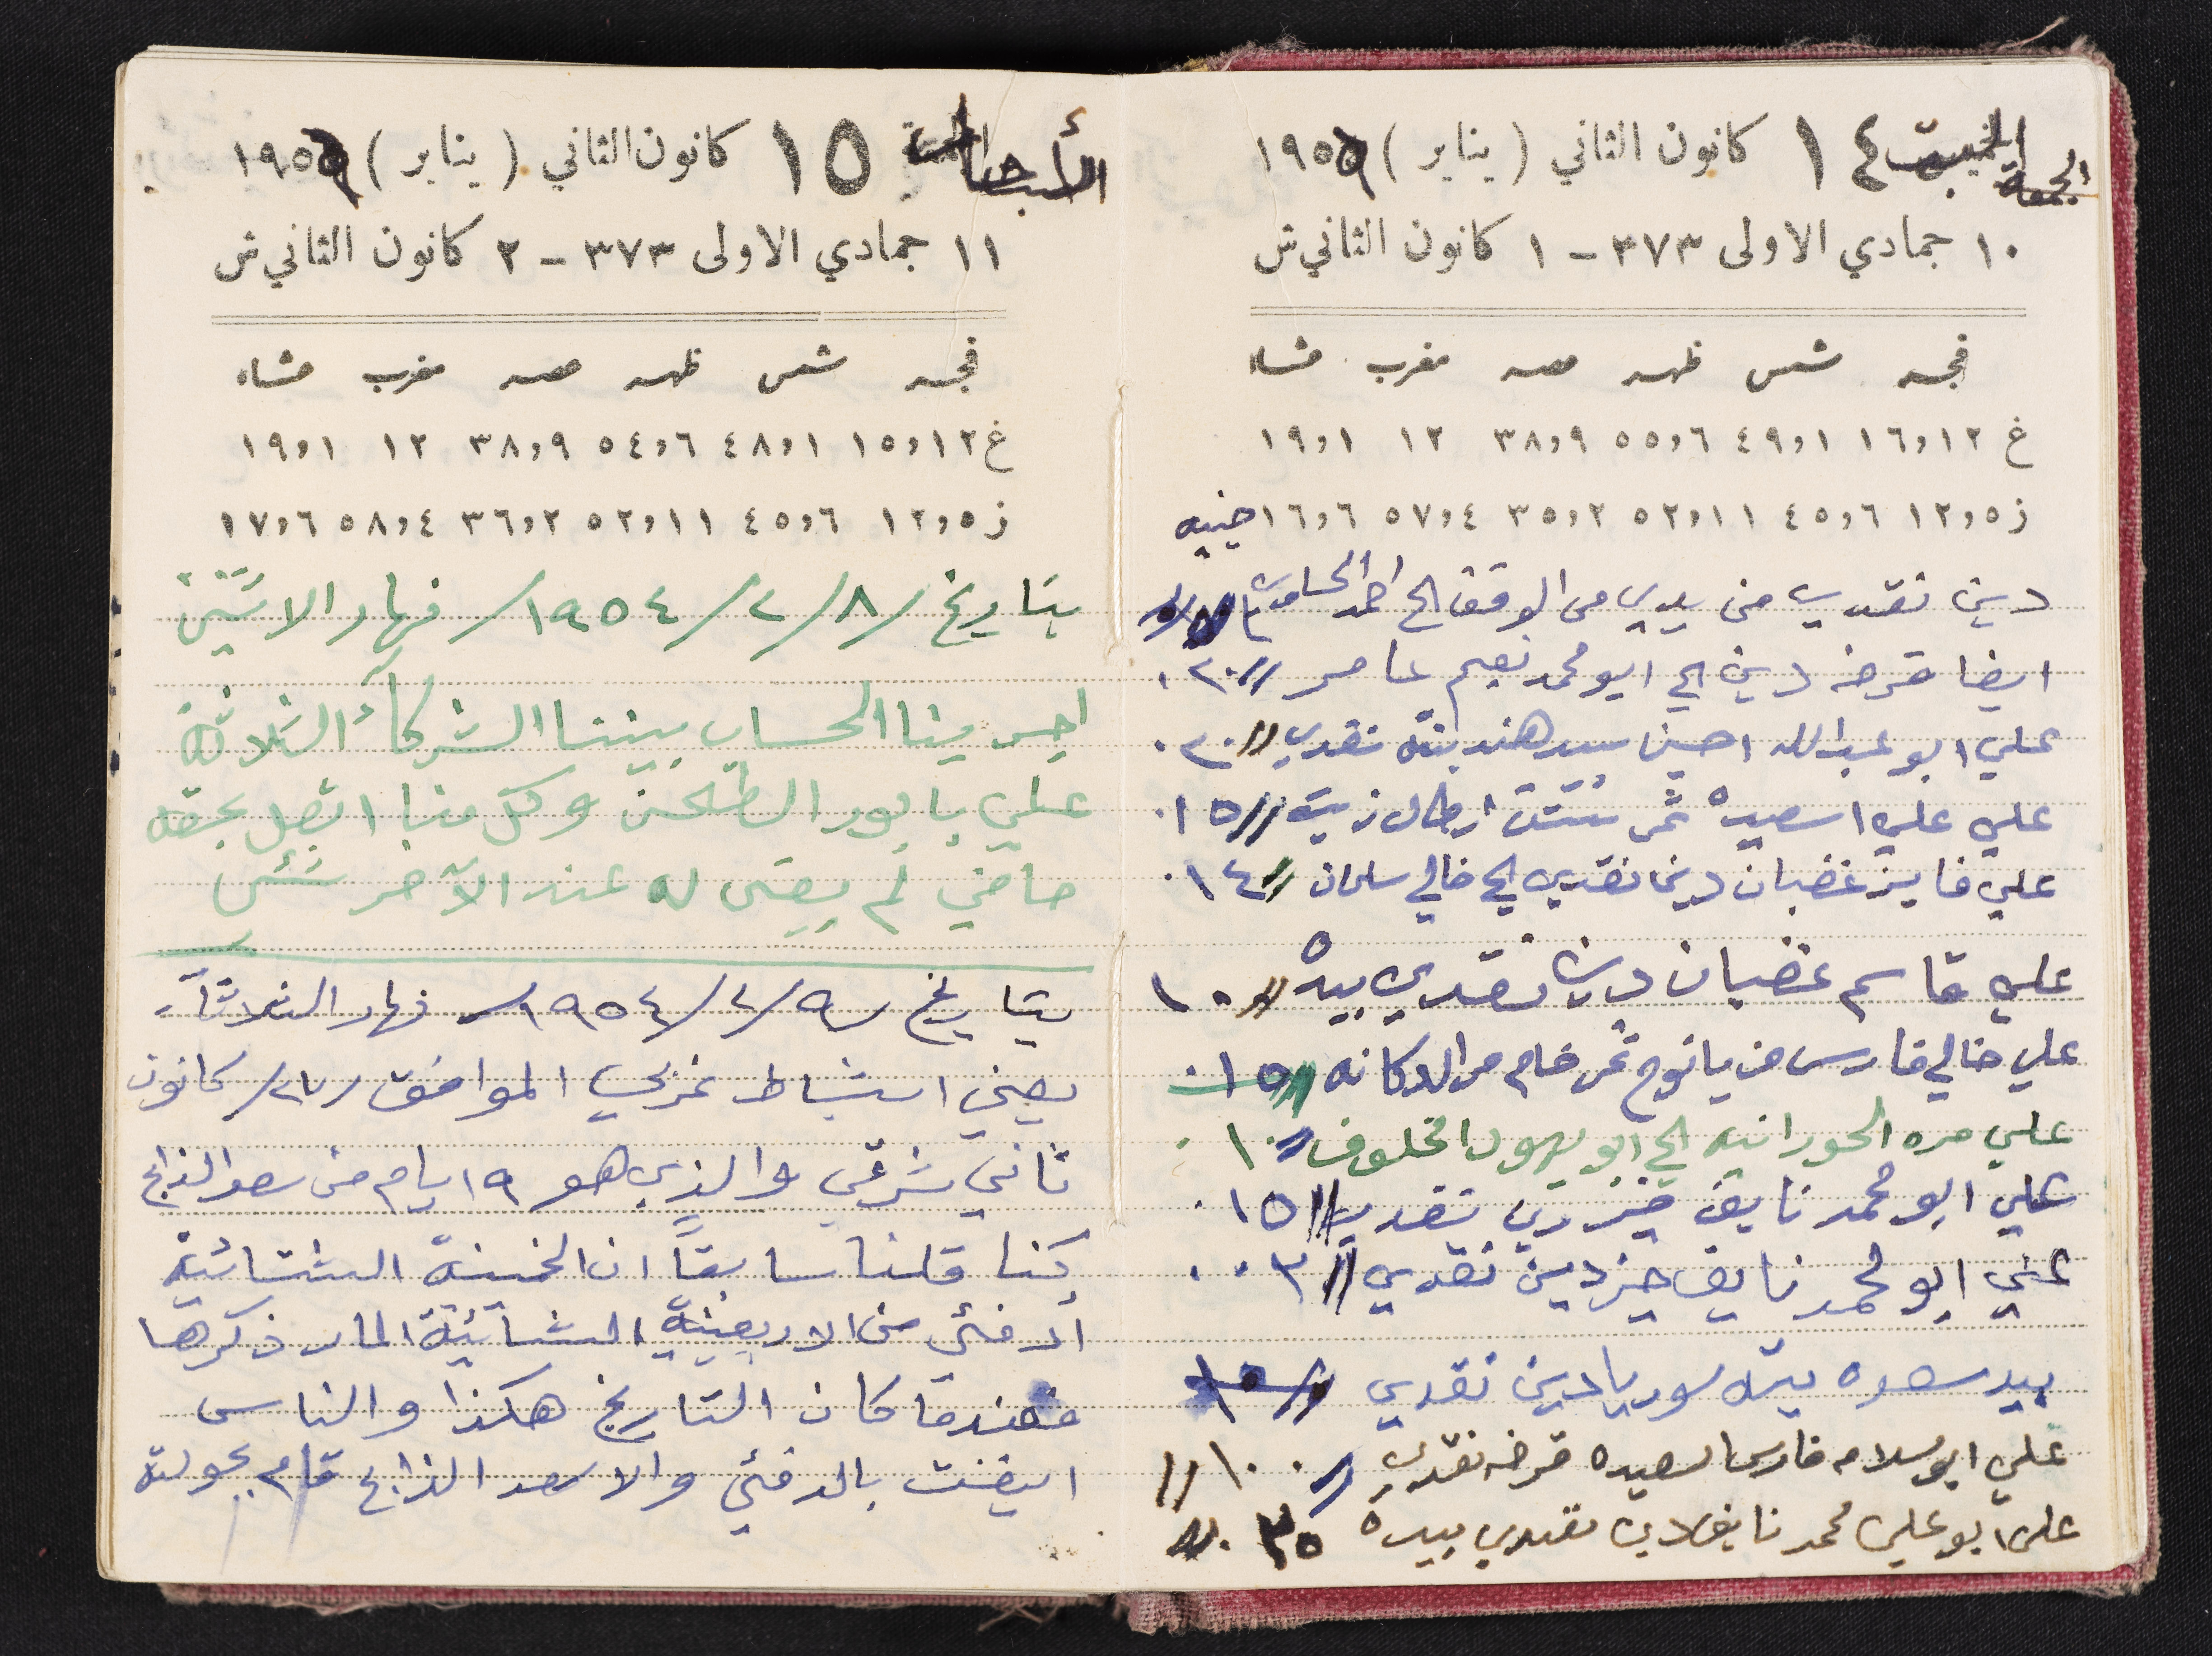 الجمعة ١٤ كانون الثاني ( يناير ) ١٩٥٥
١٠ جمادي الاولى ٣٧٣ - ١ كانون الثاني ش
فجر شمس ظهر عصر مغرب عشاء
غ ١٦,١٢ ٤٩,١ ٥٥,٦ ٣٨,٩ ١٢ ١٩,١
ز ١٢,٥ ٤٥,٦ ٥٢,١١ ٣٥,٢ ٥٧,٤ ١٦,٦ جنيه
دين نقدي من يدي من الوقف الى احمد
ايضا قرضه دين الى ابو محمد نجم عامر // ٢٠٠
علي ابو عبدالله احسين سيد هند بنته نقدي // ٢٠٠
علي علي اسعيد ثمن ارطال زيت // ١٥٠
علي فايز غضبان دين نقدي الى خالي سلمان // ١٤٠
علي قاسم غضبان دين نقدي بيده // ١٠
علي خالي فارس من يانوح ثمن خام من الدكانه // ١٥٠
علي مره الحورانيه الى ابو يهود المخلوف // ١٠٠
علي ابو محمد نايف خير دين نقدي // ١٥٠
علي ابو محمد نايف خير دين نقدي // ٣٠٠
بيد سعده سوريا دين نقدي //
علي ابو سلامه فارس اسعيده قرضه نقدي // ١٠٠ //
على ابو علي محمد نايف دين نقدي بيده ٣٥٠ //
الأحد ١٥ كانون الثاني ( يناير ) ١٩٥٥
١١ جمادي الاولى ٣٧٣ - ٢ كانون الثاني ش
فجر شمس ظهر عصر مغرب عشاء
غ ١٥,١٢ ٤٨,١ ٥٤,٦ ٣٨,٩ ١٢ ١٩,١
ز ١٢,٥ ٤٥,٦ ٥٢,١١ ٣٦,٢ ٥٨,٤ ١٧,٦
بتاريخ /٨/٢/١٩٥٤/ نهار الاثنين
اجرينا الحساب بيننا الشركآء الثلاثة
علي بابور الطحين وكل منا اتصل بحقه
صافي لم يبقى له عند الآخر شئ
بتاريخ /٩/٢/١٩٥٤ نهار الثلاثآء
يعني اشباط غربي الموافق /٢٧/ كانون
ثاني شرقي والذي هو ٩ ايام من سعد الذابح
كنا قلنا سابقاً ان الخمينة الشتائية
أدفئ من الاربعينية الشتآئية المار ذكرها
فعندما كان التاريخ هكذا والناس
ايقنت بالدفئ والا سعد الذابح قام بجولته